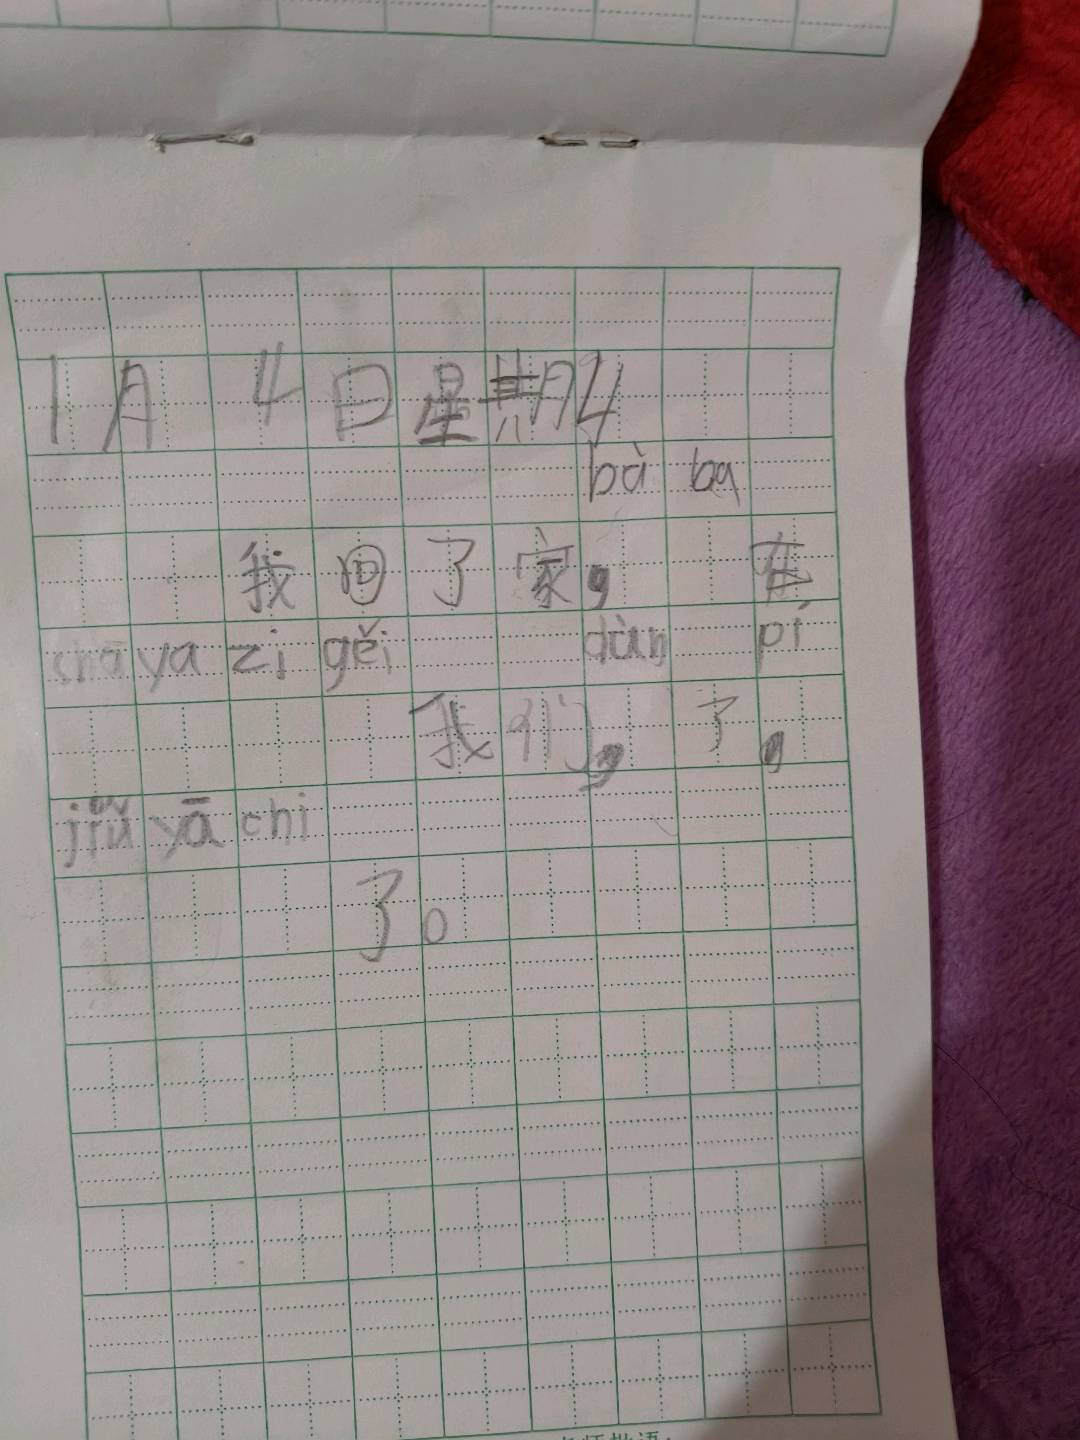 1月4日星期4
bà ba
我回了家,在
chā ya zi gěi dàn pí
我们,了,
jiǔ yā chi
了。